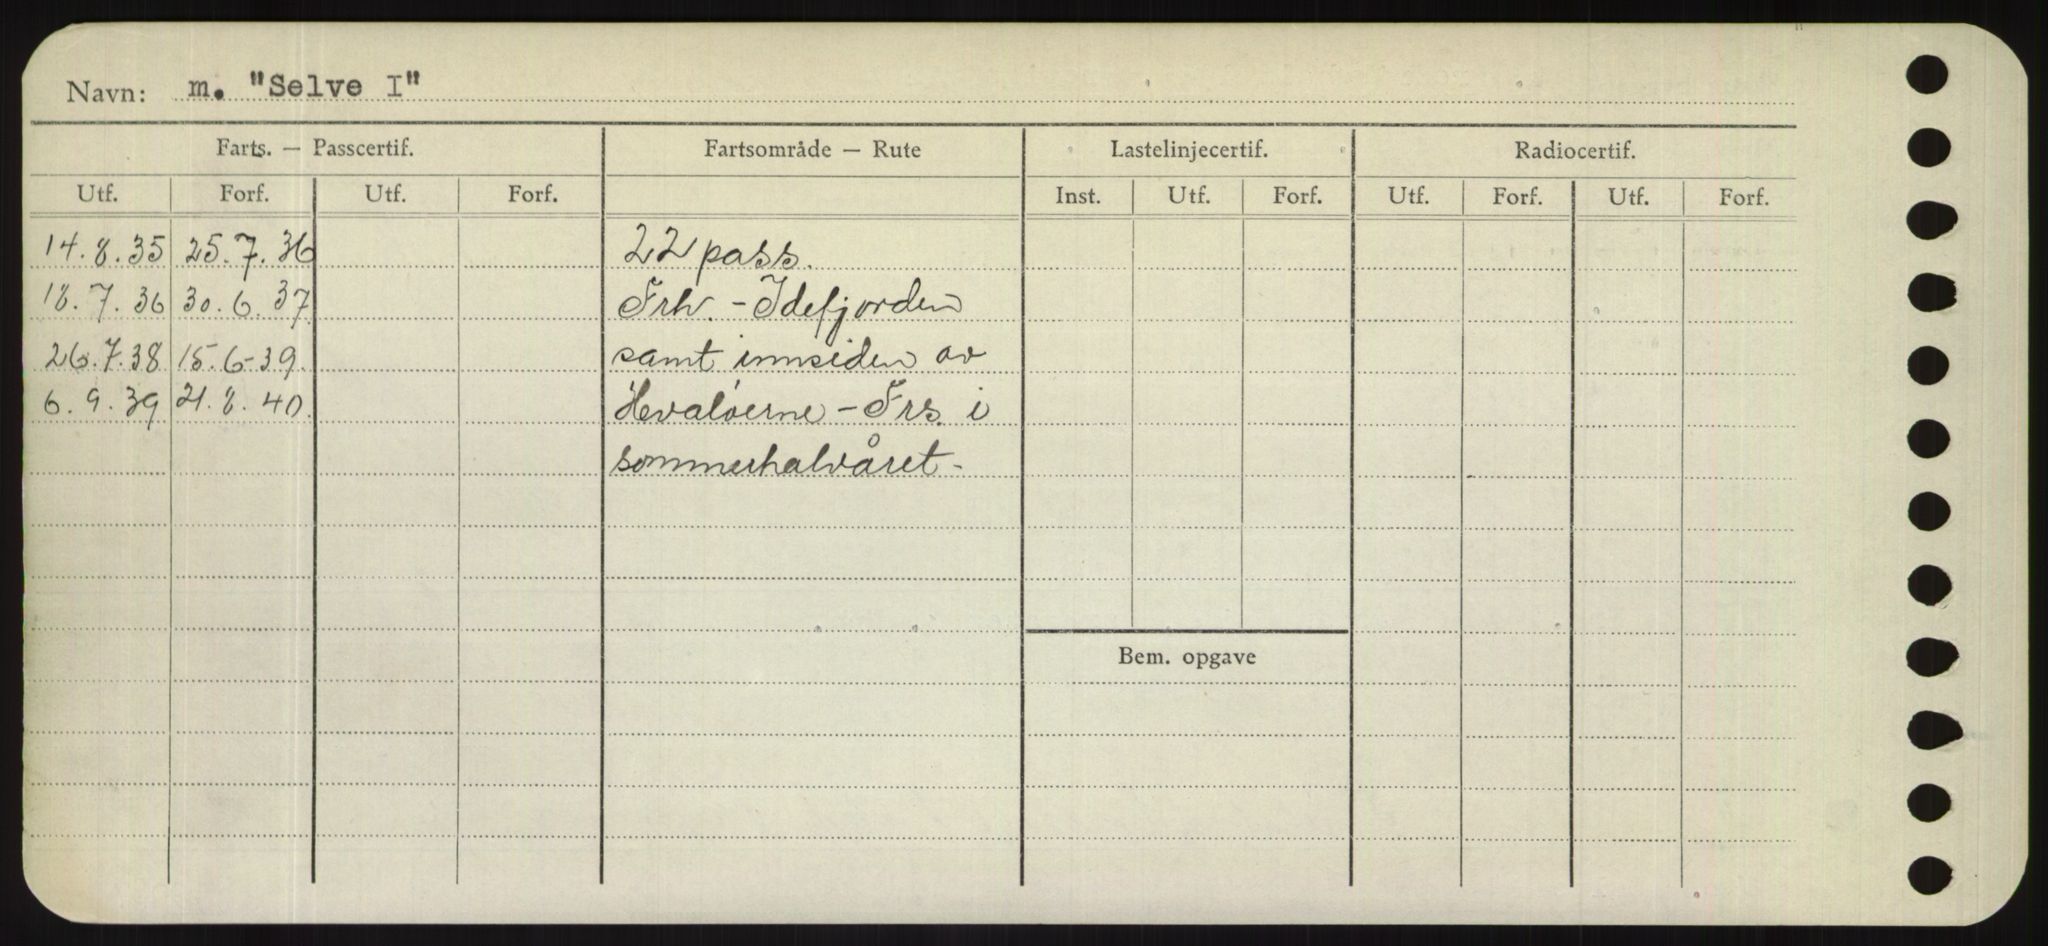 Navn: m. "Selve I"
Farts. — Passcertif. Fartsområde — Rute Lastelinjecertif. Radiocertif.
Utf. Forf. Utf. Forf. Inst. Utf. Forf. Utf. Forf. Utf. Forf.
14.8.35 25.7.36 22 pass.
18.7.36 30.6.37 Frh. - Idefjorden
26.7.38 15.6-39. samt innsiden av
6.9.39 21.8.40. Hvaløerne - Frs. i
sommerhalvåret-
Bem. opgave